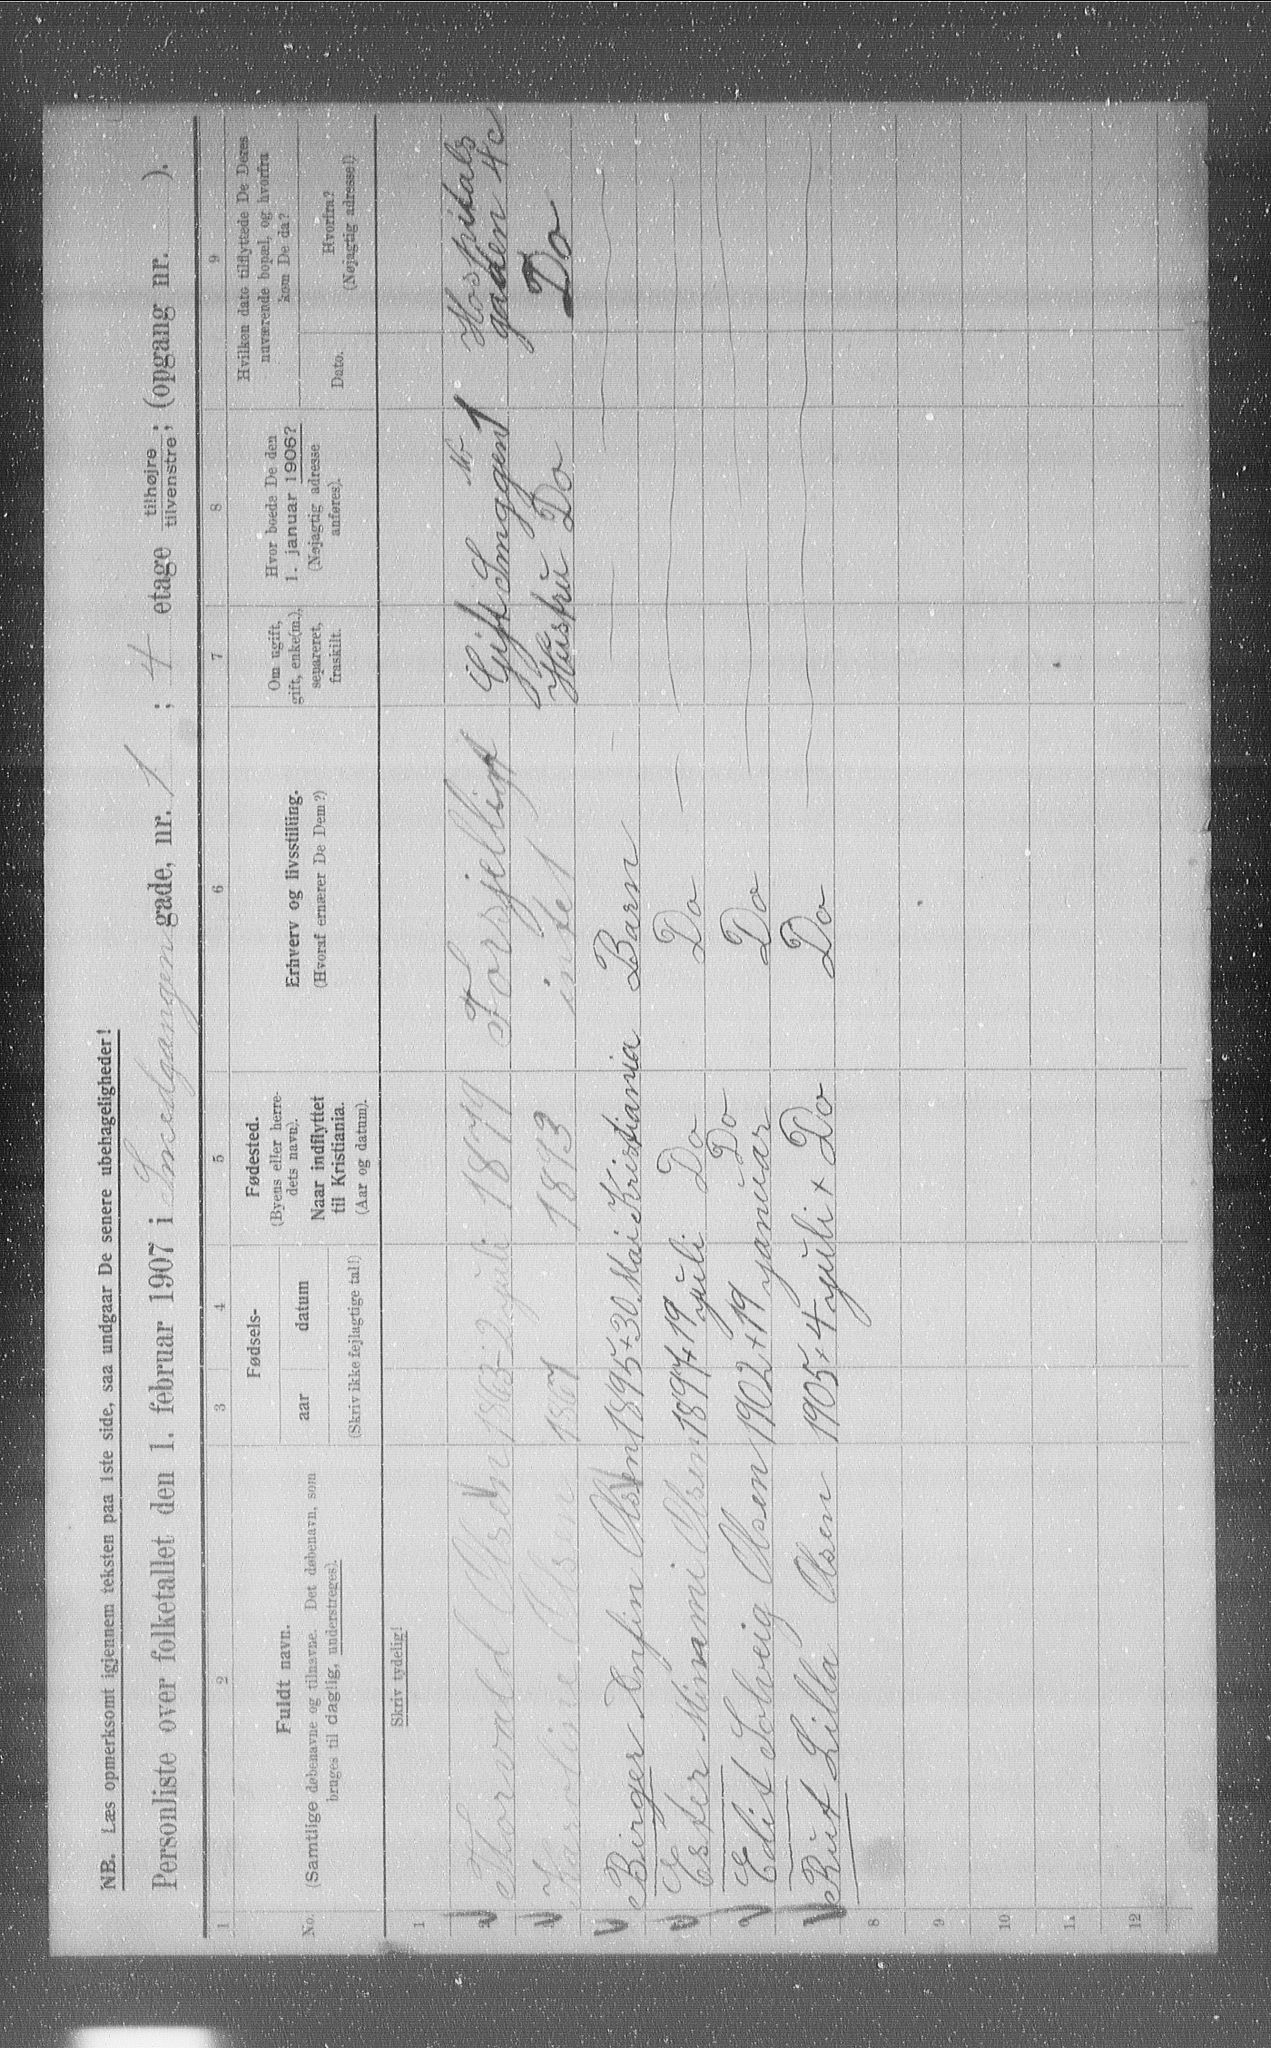 NB. Læs opmerksomt igjennem teksten paa 1ste side, saa undgaar De senere ubehageligheder!
Personliste over folketallet den 1. februar 1907 i Smedgangen gade, nr. 1 ; 4 etage tilhøjre tilvenstre; (opgang nr. ).
1 2 3 4 5 6 7 8 9
No.
Fuldt navn.
(Samtlige døbenavne og tilnavne. Det døbenavn, som
bruges til daglig, understreges).
Fødsels-
aar datum
(Skriv ikke fejlagtige tal!)
Fødested.
(Byens eller herre-
dets navn).
Naar indflyttet
til Kristiania.
(Aar og datum).
Erhverv og livsstilling.
(Hvoraf ernærer De Dem?)
Om ugift,
gift, enke(m.),
separeret,
fraskilt.
Hvor boede De den
1. januar 1906?
(Nøjagtig adresse
anføres).
Hvilken dato tilflyttede De Deres
nuværende bopæl, og hvorfra
kom De da?
Dato.
Hvorfra?
(Nøjagtig adresse!)
Skriv tydelig!
1
2 Thorvald Olsen 1863 - 2 juli 1874 Forsjelligt Gift No 1 Hospitals
gaden 4c
3 Karoline Olsen 1867 1893 intet Hustru Do Do
Birger Olsen 1895 + 30 Mai Kristiania Barn
Ester Olsen 1897 + 19 juli Do Do
Edit Solveig Olsen 1902 + 19 januar Do Do
Rut Lilla Olsen 1905 + 4 juli + Do Do
8
9
10
11
12